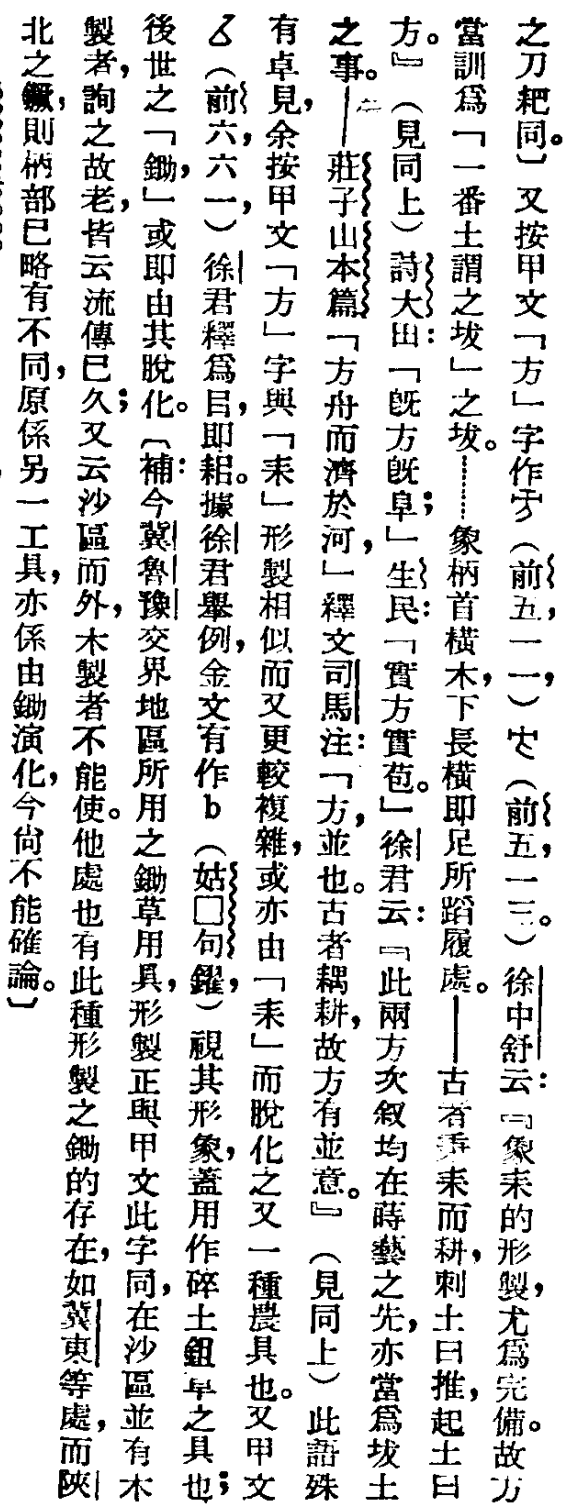 之刀耙同。〕又按甲文「方」字作（前五，一一，）（前五，一三。）徐中舒云：『象耒的形製，尤爲完備。故方
當訓爲「一番土謂之坺」之坺。……象柄首橫木，下長橫即足所蹈履處。——古者秉耒而耕，刺土曰推，起土曰
方。』（見同上）詩大田：「旣方旣皁；」生民：「實方實苞。」徐君云：『此兩方次叙均在蒔藝之先，亦當爲坺土
之事。——莊子山本篇「方舟而濟於河，」釋文司馬注：「方，並也。古者耦耕，故方有並意。』（見同上）此語殊
有卓見，余按甲文「方」字與「耒」形製相似而又更較複雜，或亦由「耒」而脫化之又一種農具也。又甲文
（前六，六一，）徐君釋爲㠯，即耜。據徐君舉例，金文有作b（姑□句鑃，）視其形象，蓋用作碎土鉏草之具也；
後世之「鋤，」或即由其脫化。〔補：今冀魯豫交界地區所用之鋤草用具，形製正與甲文此字同，在沙區並有木
製者，詢之故老，皆云流傳已久；又云沙區而外，木製者不能使。他處也有此種形製之鋤的存在，如冀東等處，而陝
北之鐝，則柄部已略有不同，原係另一工具，亦係由鋤演化，今尙不能確論。〕